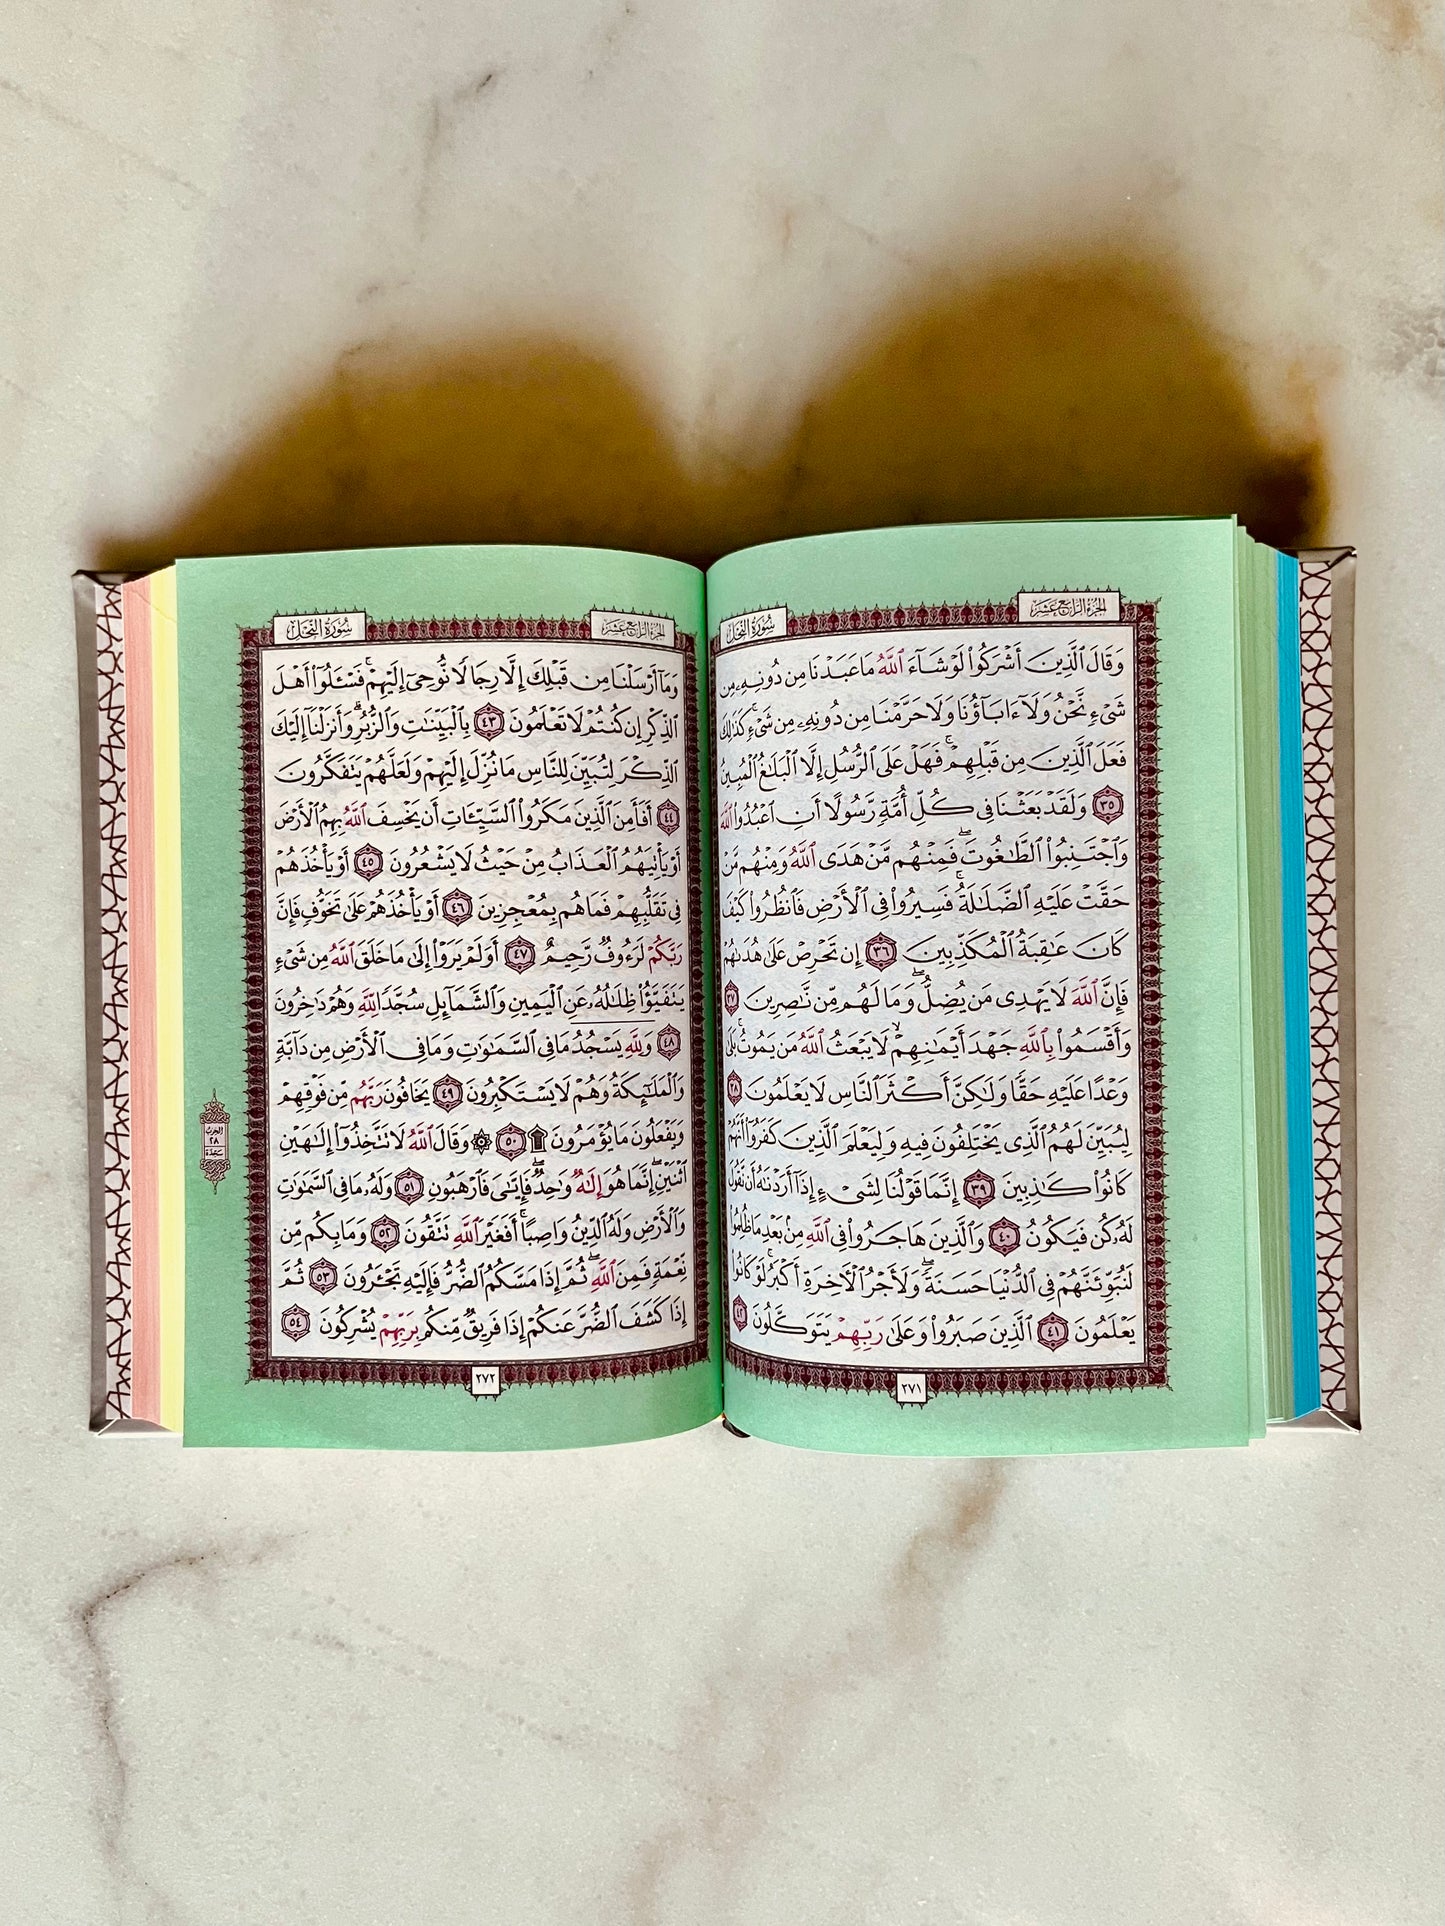 الجزء الرابع عشر
سورة النحل
وَقَالَ ٱلَّذِينَ أَشْرَكُوا۟ لَوْ شَآءَ ٱللَّهُ مَا عَبَدْنَا مِن دُونِهِۦ مِن
شَىْءٍ نَّحْنُ وَلَآ ءَابَآؤُنَا وَلَا حَرَّمْنَا مِن دُونِهِۦ مِن شَىْءٍ ۚ كَذَٰلِكَ
فَعَلَ ٱلَّذِينَ مِن قَبْلِهِمْ ۚ فَهَلْ عَلَى ٱلرُّسُلِ إِلَّا ٱلْبَلَٰغُ ٱلْمُبِينُ
٣٥ وَلَقَدْ بَعَثْنَا فِى كُلِّ أُمَّةٍ رَّسُولًا أَنِ ٱعْبُدُوا۟ ٱللَّهَ
وَٱجْتَنِبُوا۟ ٱلطَّٰغُوتَ ۖ فَمِنْهُم مَّنْ هَدَى ٱللَّهُ وَمِنْهُم مَّنْ
حَقَّتْ عَلَيْهِ ٱلضَّلَٰلَةُ ۚ فَسِيرُوا۟ فِى ٱلْأَرْضِ فَٱنظُرُوا۟ كَيْفَ
كَانَ عَٰقِبَةُ ٱلْمُكَذِّبِينَ ٣٦ إِن تَحْرِصْ عَلَىٰ هُدَىٰهُمْ
فَإِنَّ ٱللَّهَ لَا يَهْدِى مَن يُضِلُّ ۖ وَمَا لَهُم مِّن نَّٰصِرِينَ ٣٧
وَأَقْسَمُوا۟ بِٱللَّهِ جَهْدَ أَيْمَٰنِهِمْ ۙ لَا يَبْعَثُ ٱللَّهُ مَن يَمُوتُ ۚ بَلَىٰ
وَعْدًا عَلَيْهِ حَقًّا وَلَٰكِنَّ أَكْثَرَ ٱلنَّاسِ لَا يَعْلَمُونَ ٣٨
لِيُبَيِّنَ لَهُمُ ٱلَّذِى يَخْتَلِفُونَ فِيهِ وَلِيَعْلَمَ ٱلَّذِينَ كَفَرُوٓا۟ أَنَّهُمْ
كَانُوا۟ كَٰذِبِينَ ٣٩ إِنَّمَا قَوْلُنَا لِشَىْءٍ إِذَآ أَرَدْنَٰهُ أَن نَّقُولَ
لَهُۥ كُن فَيَكُونُ ٤٠ وَٱلَّذِينَ هَاجَرُوا۟ فِى ٱللَّهِ مِنۢ بَعْدِ مَا ظُلِمُوا۟
لَنُبَوِّئَنَّهُمْ فِى ٱلدُّنْيَا حَسَنَةً ۖ وَلَأَجْرُ ٱلْـَٔاخِرَةِ أَكْبَرُ ۚ لَوْ كَانُوا۟
يَعْلَمُونَ ٤١ ٱلَّذِينَ صَبَرُوا۟ وَعَلَىٰ رَبِّهِمْ يَتَوَكَّلُونَ ٤٢
٢٧١
الجزء الرابع عشر
سورة النحل
وَمَآ أَرْسَلْنَا مِن قَبْلِكَ إِلَّا رِجَالًا نُّوحِىٓ إِلَيْهِمْ ۚ فَسْـَٔلُوٓا۟ أَهْلَ
ٱلذِّكْرِ إِن كُنتُمْ لَا تَعْلَمُونَ ٤٣ بِٱلْبَيِّنَٰتِ وَٱلزُّبُرِ ۗ وَأَنزَلْنَآ إِلَيْكَ
ٱلذِّكْرَ لِتُبَيِّنَ لِلنَّاسِ مَا نُزِّلَ إِلَيْهِمْ وَلَعَلَّهُمْ يَتَفَكَّرُونَ
٤٤ أَفَأَمِنَ ٱلَّذِينَ مَكَرُوا۟ ٱلسَّيِّـَٔاتِ أَن يَخْسِفَ ٱللَّهُ بِهِمُ ٱلْأَرْضَ
أَوْ يَأْتِيَهُمُ ٱلْعَذَابُ مِنْ حَيْثُ لَا يَشْعُرُونَ ٤٥ أَوْ يَأْخُذَهُمْ
فِى تَقَلُّبِهِمْ فَمَا هُم بِمُعْجِزِينَ ٤٦ أَوْ يَأْخُذَهُمْ عَلَىٰ تَخَوُّفٍ فَإِنَّ
رَبَّكُمْ لَرَءُوفٌ رَّحِيمٌ ٤٧ أَوَلَمْ يَرَوْا۟ إِلَىٰ مَا خَلَقَ ٱللَّهُ مِن شَىْءٍ
يَتَفَيَّؤُا۟ ظِلَٰلُهُۥ عَنِ ٱلْيَمِينِ وَٱلشَّمَآئِلِ سُجَّدًا لِّلَّهِ وَهُمْ دَٰخِرُونَ
٤٨ وَلِلَّهِ يَسْجُدُ مَا فِى ٱلسَّمَٰوَٰتِ وَمَا فِى ٱلْأَرْضِ مِن دَآبَّةٍ
وَٱلْمَلَٰٓئِكَةُ وَهُمْ لَا يَسْتَكْبِرُونَ ٤٩ يَخَافُونَ رَبَّهُم مِّن فَوْقِهِمْ
وَيَفْعَلُونَ مَا يُؤْمَرُونَ ۩ ٥٠ ۞ وَقَالَ ٱللَّهُ لَا تَتَّخِذُوٓا۟ إِلَٰهَيْنِ
ٱثْنَيْنِ ۖ إِنَّمَا هُوَ إِلَٰهٌ وَٰحِدٌ ۖ فَإِيَّٰىَ فَٱرْهَبُونِ ٥١ وَلَهُۥ مَا فِى ٱلسَّمَٰوَٰتِ
وَٱلْأَرْضِ وَلَهُ ٱلدِّينُ وَاصِبًا ۚ أَفَغَيْرَ ٱللَّهِ تَتَّقُونَ ٥٢ وَمَا بِكُم مِّن
نِّعْمَةٍ فَمِنَ ٱللَّهِ ۖ ثُمَّ إِذَا مَسَّكُمُ ٱلضُّرُّ فَإِلَيْهِ تَجْـَٔرُونَ ٥٣ ثُمَّ
إِذَا كَشَفَ ٱلضُّرَّ عَنكُمْ إِذَا فَرِيقٌ مِّنكُم بِرَبِّهِمْ يُشْرِكُونَ ٥٤
٢٧٢
الحزب
٢٨
سجدة